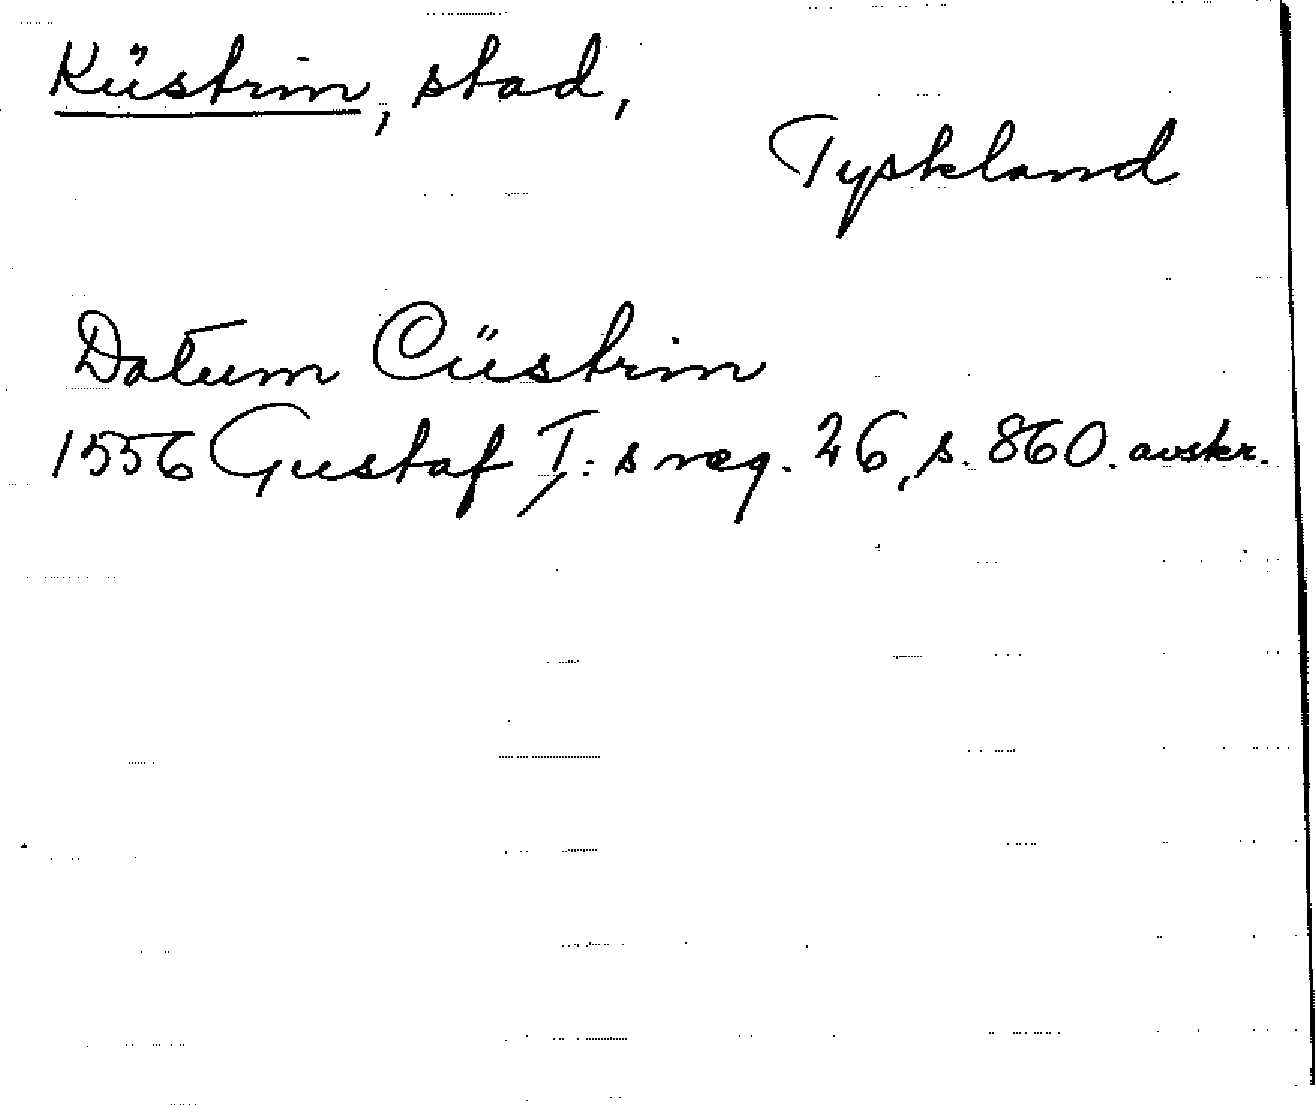 Küstrin, stad,
Tyskland
Datum Cüstrin
1556 Gustaf I:s reg. 26, s. 860. avskr.